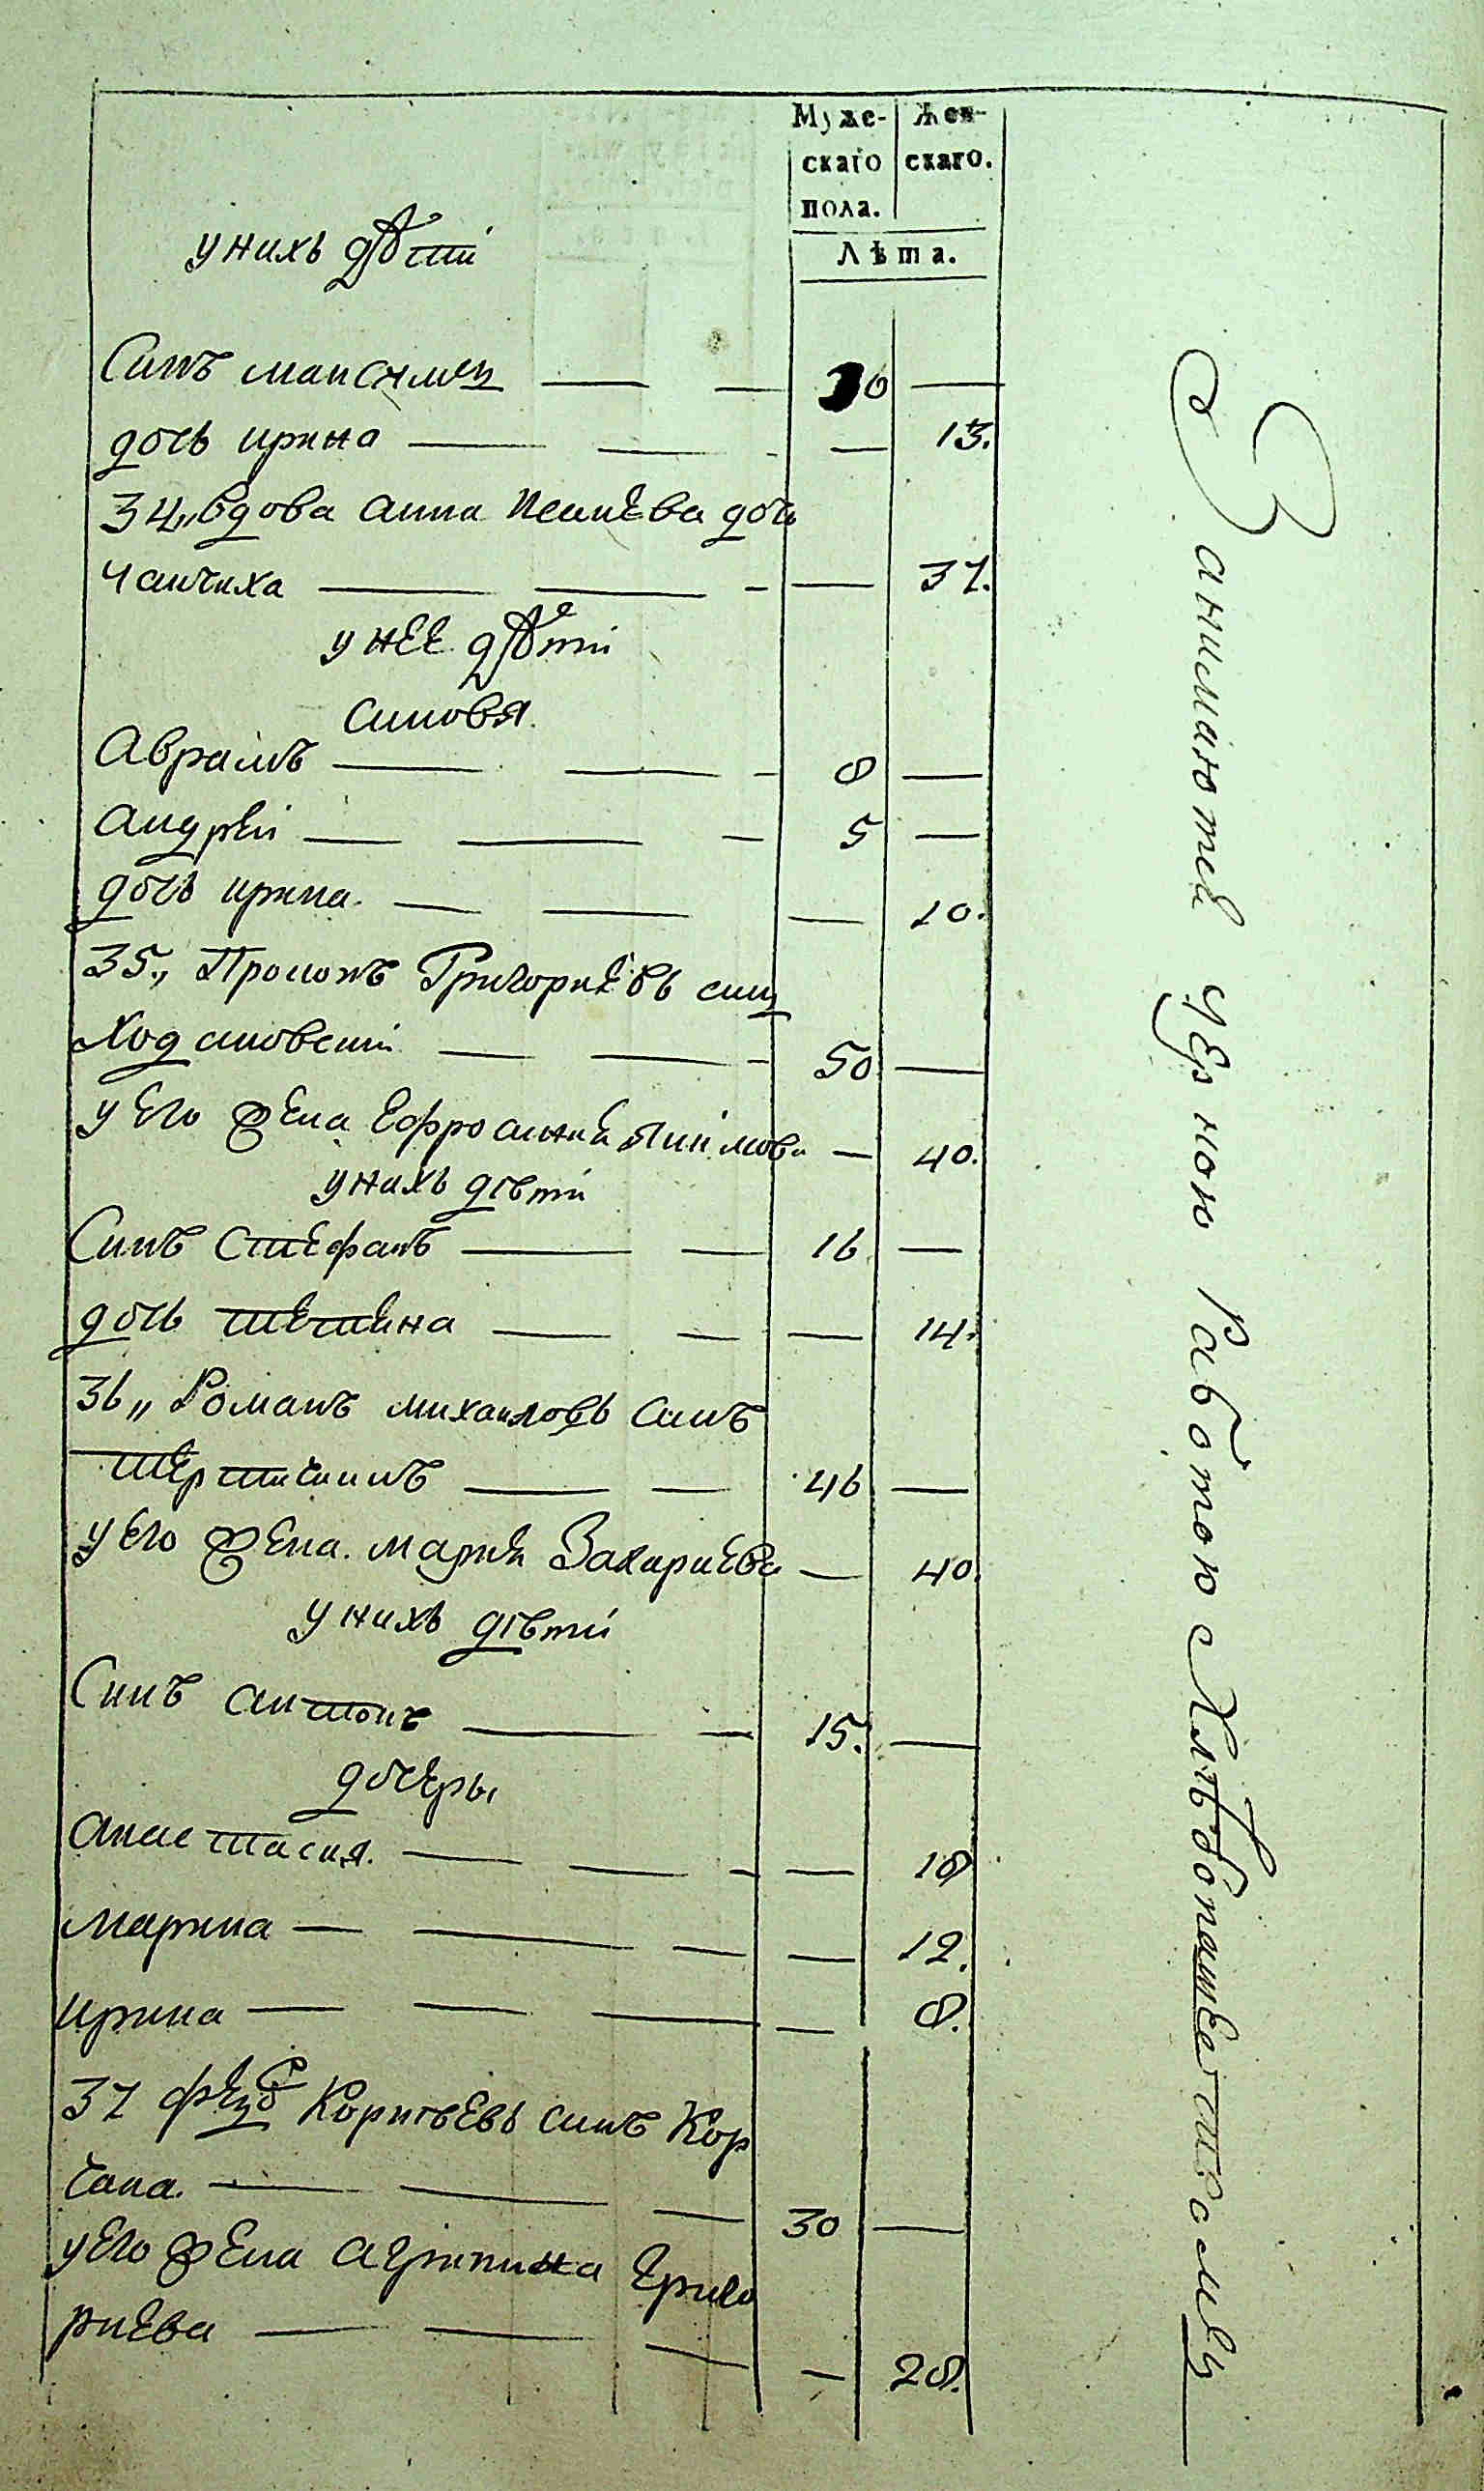 Муже- Жен-
скаго скаго.
пола.
Лѣта.
у нихъ дѣти
Синъ Максимъ — — 10 —
дочь ирина — — — 13.
34,, вдова анна дочь
— — — 37.
у нее дѣти
синовя.
аврамъ — — 8 —
андреи — — — 5 —
дочь ирина. — — — 10.
35,, Прокопъ Григориевъ синъ
Ходаковский — — 50 —
у его жена Ефросиния — 40.
у нихъ дѣти
Синъ Стефанъ — — 16 —
дочь тетиена — — — 14.
36,, Романъ михаиловъ синъ
— — 46 —
у его жена. мария Захариева — 40.
у нихъ дѣти
Синъ антонъ — — 15. —
дочеры
анастасия. — — — 18
марина — — — — 12.
ирина — — — — 8.
37 Корнѣевъ синъ Кор
чака. — — — 30 —
у его жена агрипина григо
риева — — — — 28.
Занимаются черною работою и хлѣбопашествомъ